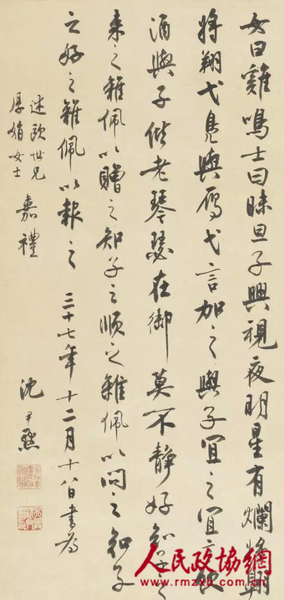 女曰雞鳴士曰昧旦子興視夜明星有爛將翱
將翔弋鳧與雁弋言加之與子宜之宜言飲
酒與子偕老琴瑟在御莫不靜好知子之
來之雜佩以贈之知子之順之雜佩以問之知子
之好之雜佩以報之 三十七年十二月十八日書為
述歐世兄
厚娟女士 嘉禮
沈尹默
人民政協網
www.rmzxb.com.cn